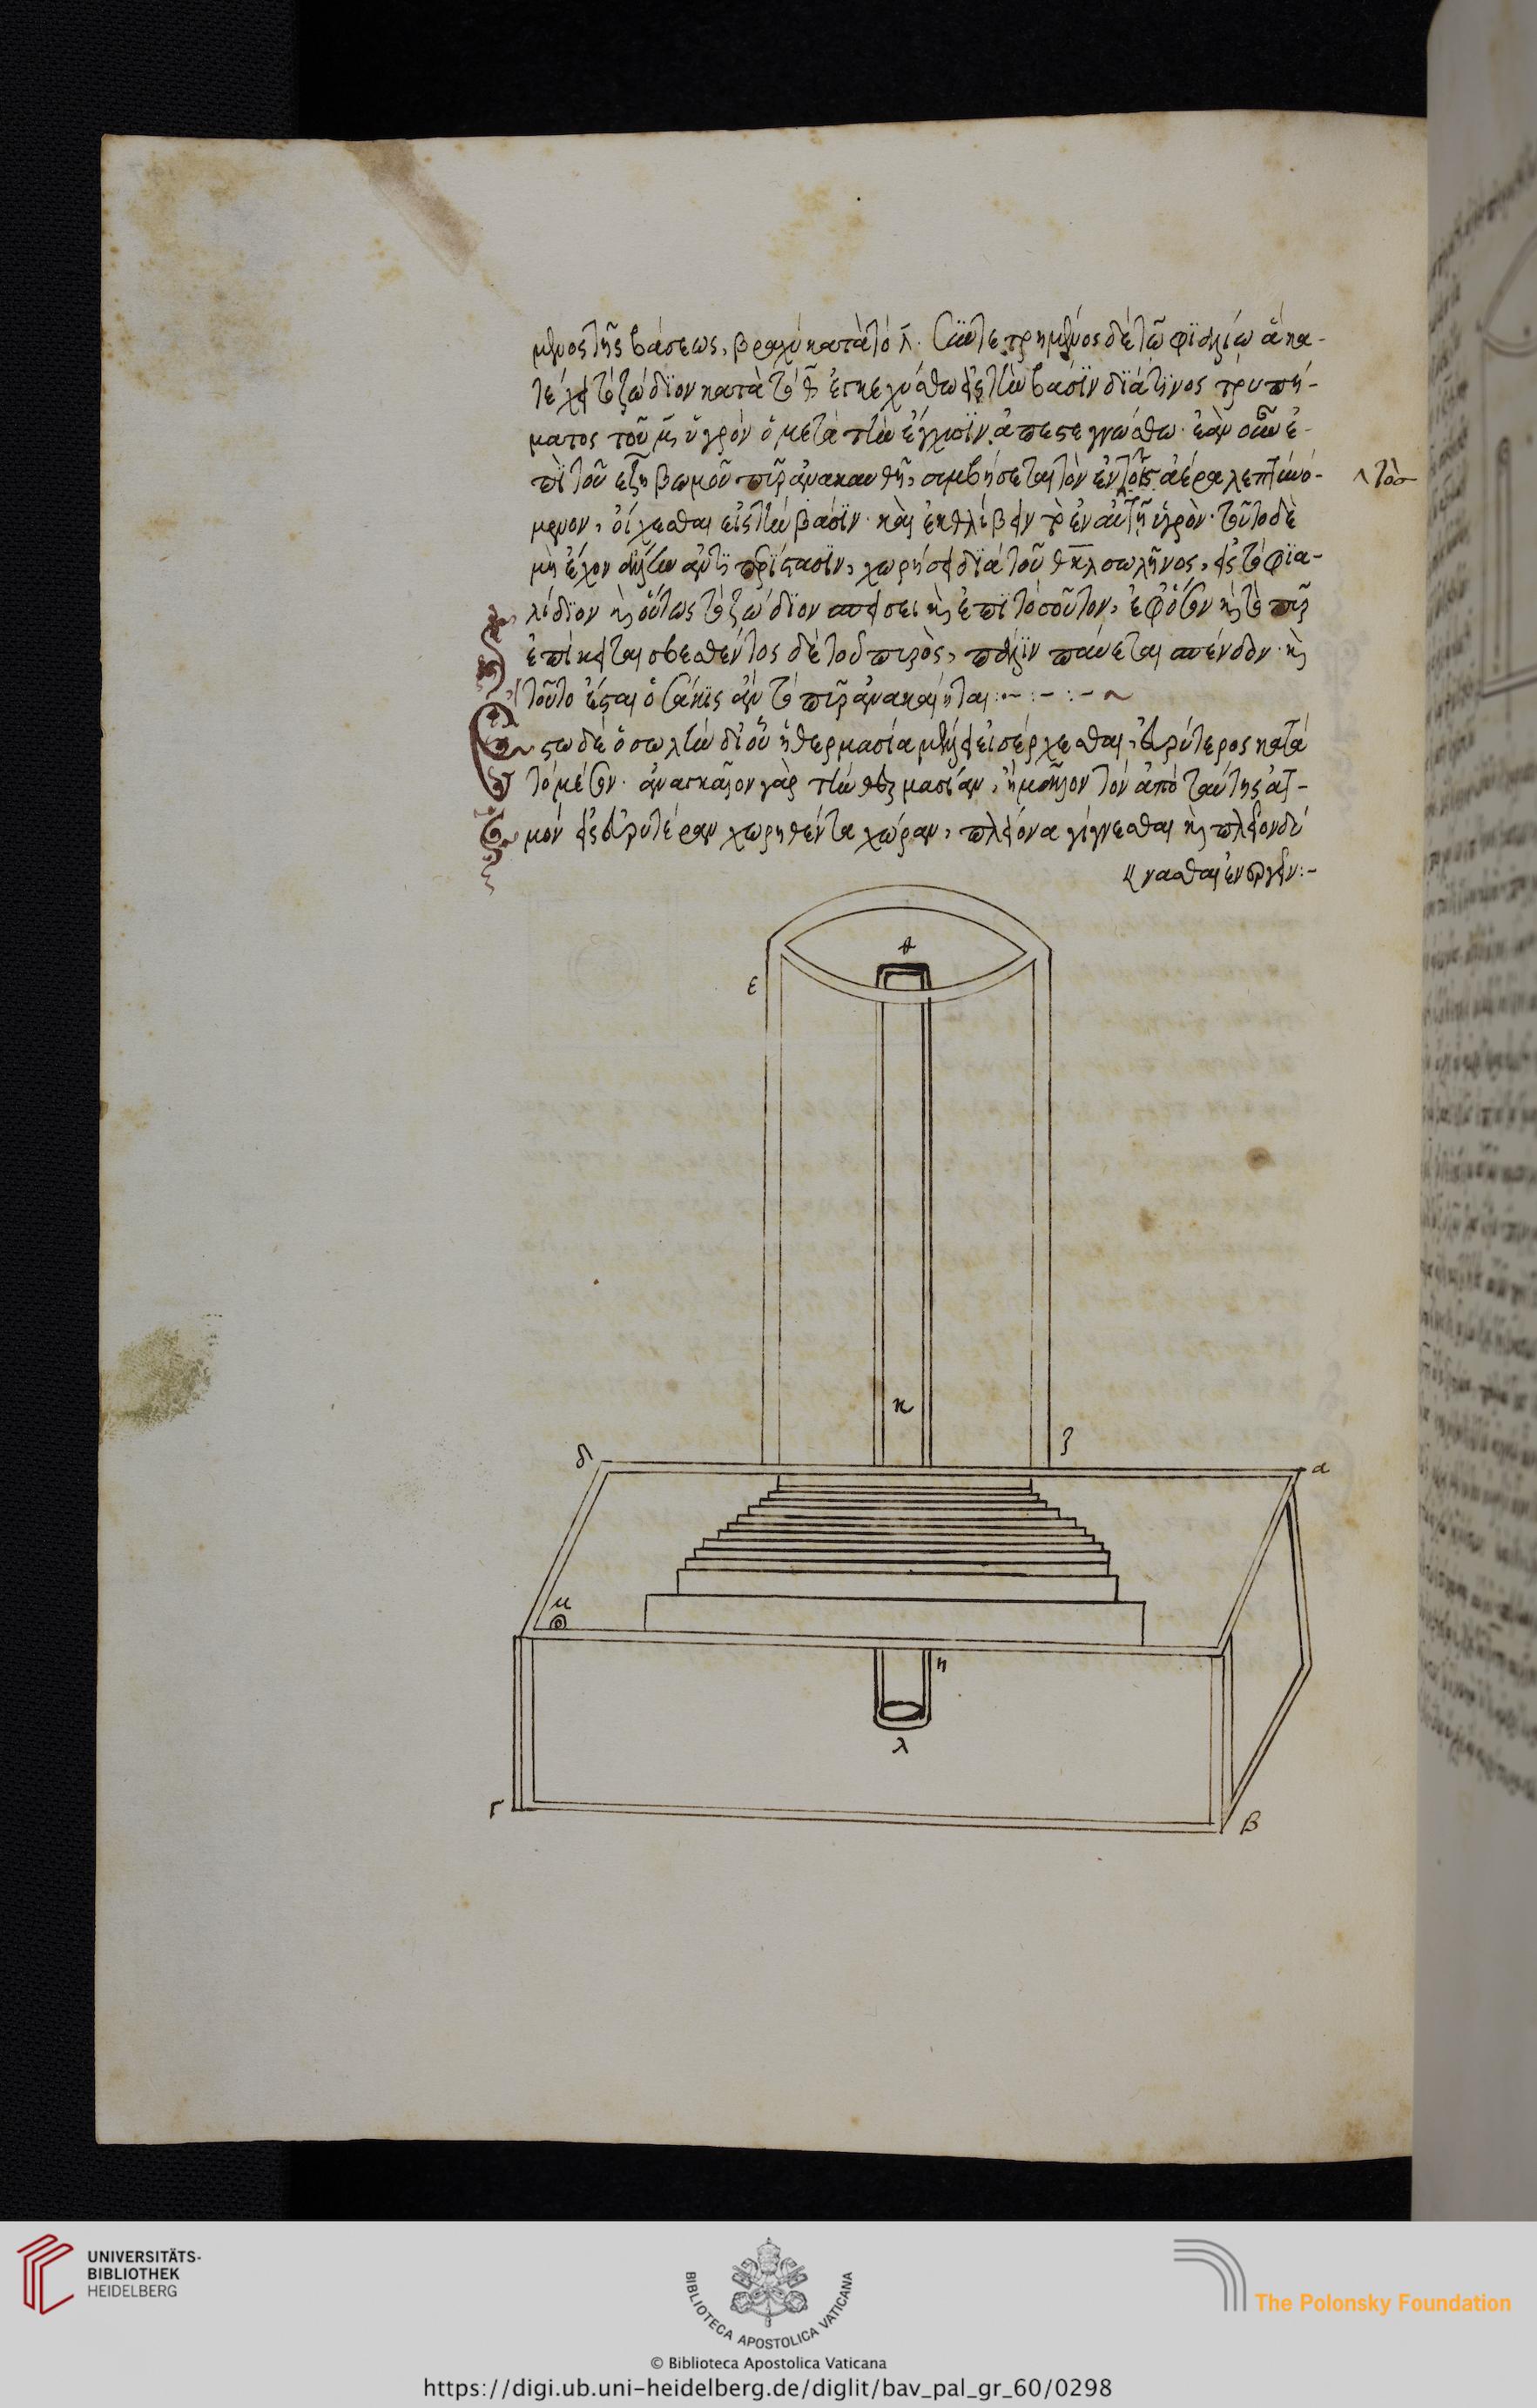 μένος τῆς βάσεως, βραχὺ κατὰ τὸ λ. συντετρημένος δὲ τῷ φϊαλίῳ ὅ κα-
τέχει τὸ ζώδϊον κατὰ τὸ θ ἐγκεχύσθω εἰς τὴν βάσϊν διά τινος τρυπή-
ματος τοῦ μ, ὑγρὸν ὃ μετὰ τὴν ἔγχυσϊν ἀπεστεγνώσθω. ἐὰν οὖν ἐ-
πὶ τοῦ εζη βωμοῦ πῦρ ἀνακαυθῆ, συμβήσεται τὸν ἐντὸς ἀέρα λεπτυνό-
μενον, οἴχεσθαι εἰς τὴν βάσϊν. καὶ ἐκθλίβειν τὸ ἐν αὐτῆ ὑγρὸν. τοῦτο δὲ
μὴ ἔχον ἄλλην αὐτῆ περίστασϊν, χωρήσει διὰ τοῦ θκλ σωλῆνος, εἰς τὸ φϊα-
λίδϊον καὶ οὕτως τὸ ζώδϊον σπείσει καὶ ἐπὶ τοσοῦτον, ἐφ' ὅσον καὶ τὸ πῦρ
ἐπίκειται σβεσθέντος δὲ τοῦ πυρὸς, πάλϊν παύεται σπένδον. καὶ
τοῦτο ἔσται ὁσάκϊς ἂν τὸ πῦρ ἀνακαίηται:-·-:-~
στω δὲ ὁ σωλὴν δι' οὗ ἡ θερμασία μέλλει εἰσέρχεσθαι, εὐρύτερος κατὰ
τὸ μέσον. ἀναγκαῖον γὰρ τὴν θερμασίαν, ἢ μᾶλλον τὸν ἀπὸ ταύτης ἀτ-
μὸν εἰς εὐρυτέραν χωρηθέντα χώραν, πλείονα γίγνεσθαι καὶ πλεῖον δύ
νασθαι ἐνεργεῖν:-
θ
ε
κ
ζ
δ
α
μ
η
λ
γ
β
UNIVERSITÄTS-
BIBLIOTHEK
HEIDELBERG
BIBLIOTECA APOSTOLICA VATICANA
The Polonsky Foundation
© Biblioteca Apostolica Vaticana
https://digi.ub.uni-heidelberg.de/diglit/bav_pal_gr_60/0298